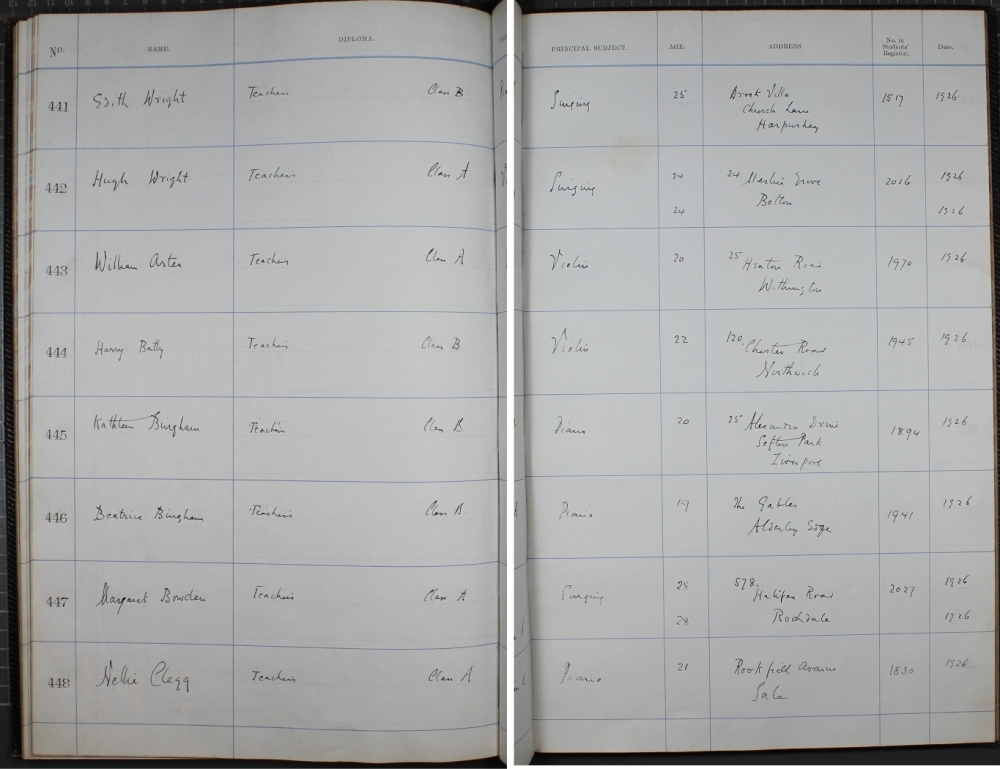 No. NAME. DIPLOMA. PRINCIPAL SUBJECT. AGE. ADDRESS. No. in Students' Register. Date.
441 Edith Wright Teachers Class B Singing 25 Brook Villa 1517 1926
Church Lane
Harpurhey
442 Hugh Wright Teachers Class A Singing 24 24 Grove 2016 1926
Bolton
24 1926
443 William Aster Teachers Class A Violin 20 25 Heaton Road 1970 1926
Withington
444 Harry Batty Teachers Class B Violin 22 120 Chester Road 1945 1926
Northwich
445 Kathleen Bingham Teachers Class B. Piano 20 25 Alexandra Drive 1894 1926
Sefton Park
Liverpool
446 Beatrice Bingham Teachers Class B. Piano 19 The Gables 1941 1926
Alderley Edge
447 Margaret Bowden Teachers Class A Singing 28 578 Halifax Road 2027 1926
28 Rochdale 1926
448 Nellie Clegg Teachers Class A Piano 21 Rookfield Avenue 1830 1926
Sale